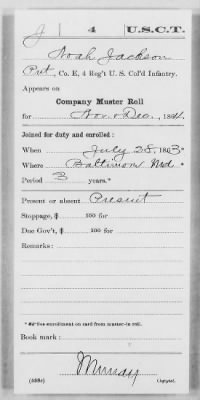 J | 4 | U.S.C.T.
Noah Jackson
Pvt, Co. E, 4 Reg't U. S. Col'd Infantry.
Appears on
Company Muster Roll
for Nov. & Dec., 1864.
Joined for duty and enrolled:
When July 28, 1863*
Where Baltimore Md*
Period 3 years.*
Present or absent Present
Stoppage, $ 100 for
Due Gov't, $ 100 for
Remarks:
*See enrollment on card from muster-in roll.
Book mark:
Murray
(358c) Copyist.